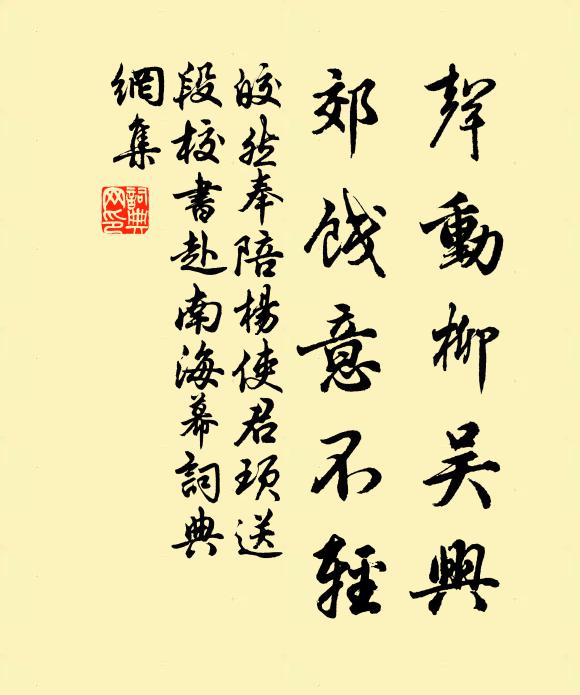 聲動柳吳興
郊餞意不輕
皎然奉陪楊使君頊送
段校書赴南海幕詞典
網集
詞典网印